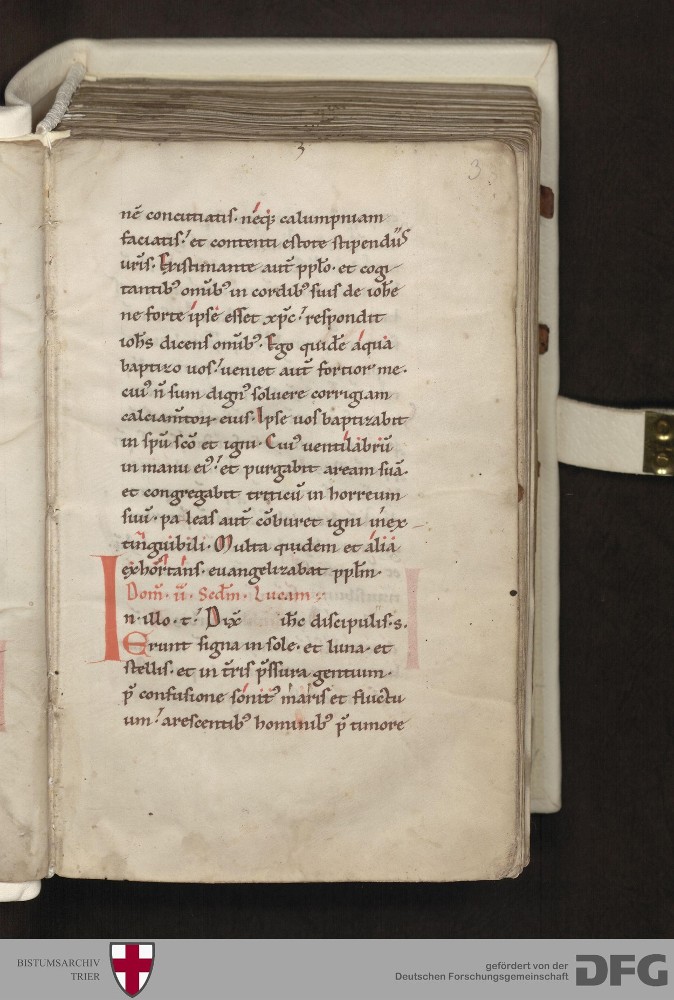 3
3
nē concutiatis. neq; calumpniam
faciatis. et contenti estote stipendiis
uris. Existimante aut pplo. et cogi
tantib; omib; in cordib; suis de iohe
ne forte ipse esset xpc. respondit
iohs dicens omib;. Ego quidē aqua
baptizo uos. ueniet aut fortior me.
cui' n sum dign' soluere corrigiam
calciamtoꝝ eius. Ipse uos baptizabit
in spu sco et igni. Cui' uentilabrū
in manu ei'. et purgabit aream suā.
et congregabit triticū in horreum
suū. paleas aut cōburet igni inex
tinguibili. Multa quidem et alia
exhortans. euangelizabat pplm.
Dom. ii. Scdm. Lucam.
In. illo. t. Dix ihc discipulis. s.
Erunt signa in sole. et luna. et
stellis. et in tris pssura gentium.
p confusione sonit' maris et fluctu
um. arescentib; hominib; p timore
BISTUMSARCHIV
TRIER
gefördert von der
Deutschen Forschungsgemeinschaft
DFG